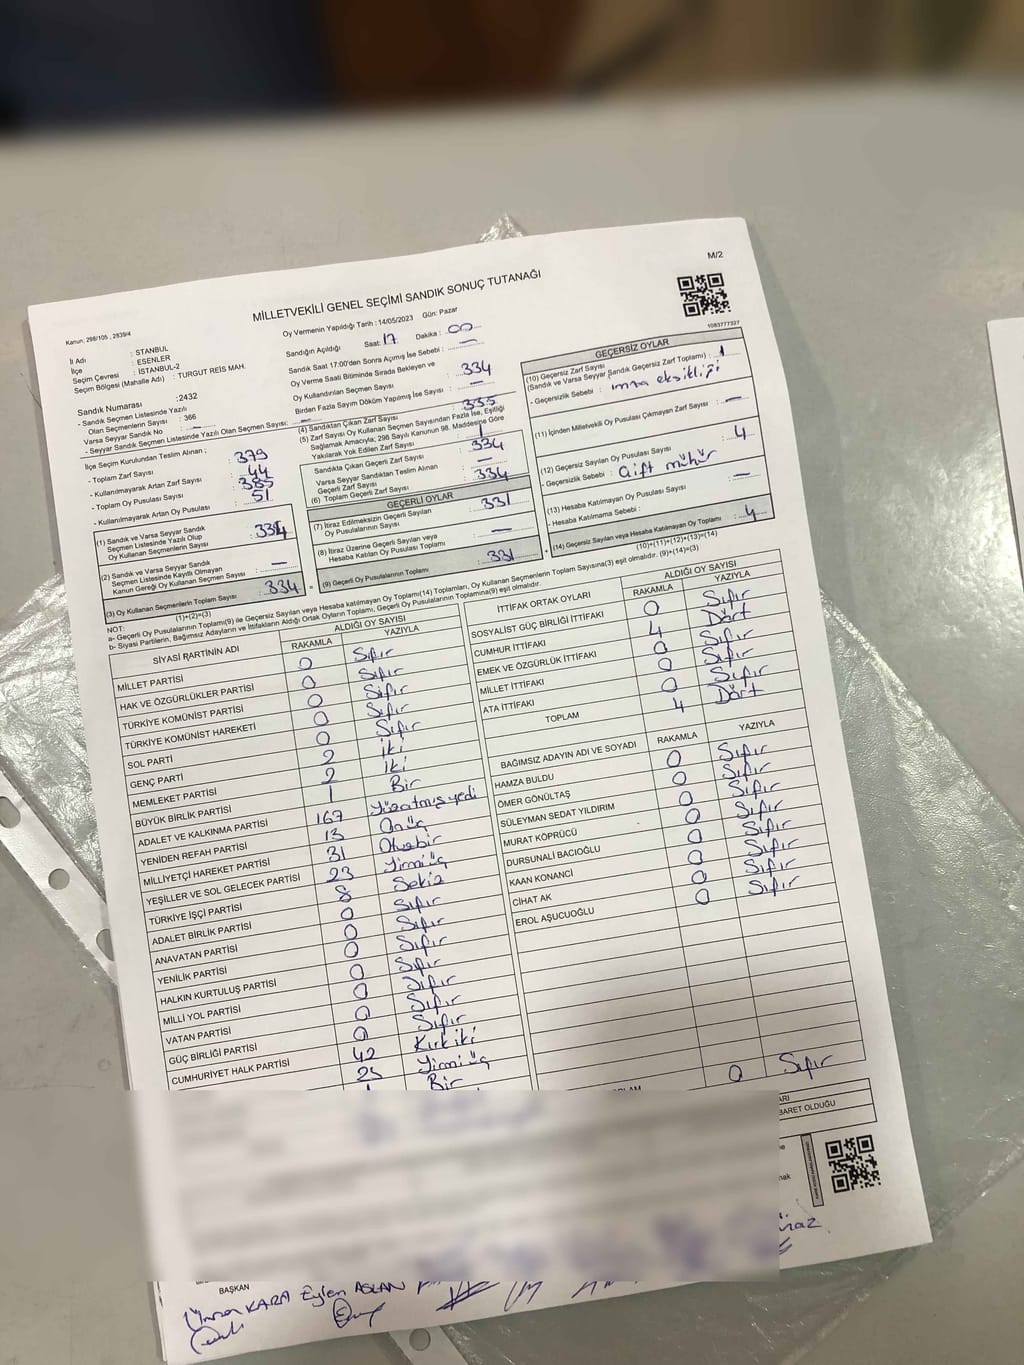 M/2
MİLLETVEKİLİ GENEL SEÇİMİ SANDIK SONUÇ TUTANAĞI
Kanun: 298/105 , 2839/4
Oy Vermenin Yapıldığı Tarih : 14/05/2023 Gün: Pazar
1083777327
İl Adı : STANBUL
İlçe : ESENLER
Seçim Çevresi : İSTANBUL-2
Seçim Bölgesi (Mahalle Adı) : TURGUT REİS MAH.
Sandık Numarası :2432
- Sandık Seçmen Listesinde Yazılı
Olan Seçmenlerin Sayısı : 366
Varsa Seyyar Sandık No : —
- Seyyar Sandık Seçmen Listesinde Yazılı Olan Seçmen Sayısı: —
Sandığın Açıldığı Saat: 17 Dakika : 00
Sandık Saat 17:00'den Sonra Açılmış İse Sebebi : —
Oy Verme Saati Bitiminde Sırada Bekleyen ve
Oy Kullandırılan Seçmen Sayısı : 334
Birden Fazla Sayım Döküm Yapılmış İse Sayısı : —
İlçe Seçim Kurulundan Teslim Alınan ;
- Toplam Zarf Sayısı : 379
- Kullanılmayarak Artan Zarf Sayısı : 44
- Toplam Oy Pusulası Sayısı : 385
- Kullanılmayarak Artan Oy Pusulası : 51
(1) Sandık ve Varsa Seyyar Sandık
Seçmen Listesinde Yazılı Olup
Oy Kullanan Seçmenlerin Sayısı : 334
(2) Sandık ve Varsa Seyyar Sandık
Seçmen Listesinde Kayıtlı Olmayan
Kanun Gereği Oy Kullanan Seçmen Sayısı : —
(3) Oy Kullanan Seçmenlerin Toplam Sayısı : 334
(1)+(2)=(3)
(4) Sandıktan Çıkan Zarf Sayısı : 335
(5) Zarf Sayısı Oy Kullanan Seçmen Sayısından Fazla İse, Eşitliği
Sağlamak Amacıyla; 298 Sayılı Kanunun 98. Maddesine Göre
Yakılarak Yok Edilen Zarf Sayısı : 1
Sandıkta Çıkan Geçerli Zarf Sayısı : 334
Varsa Seyyar Sandıktan Teslim Alınan
Geçerli Zarf Sayısı : —
(6) Toplam Geçerli Zarf Sayısı : 334
GEÇERLİ OYLAR
(7) İtiraz Edilmeksizin Geçerli Sayılan
Oy Pusulalarının Sayısı : 331
(8) İtiraz Üzerine Geçerli Sayılan veya
Hesaba Katılan Oy Pusulası Toplamı : —
(9) Geçerli Oy Pusulalarının Toplamı : 331
GEÇERSİZ OYLAR
(10) Geçersiz Zarf Sayısı
(Sandık ve Varsa Seyyar Sandık Geçersiz Zarf Toplamı) : 1
- Geçersizlik Sebebi : imza eksikliği
(11) İçinden Milletvekili Oy Pusulası Çıkmayan Zarf Sayısı : —
(12) Geçersiz Sayılan Oy Pusulası Sayısı : 4
- Geçersizlik Sebebi : Çift mühür
(13) Hesaba Katılmayan Oy Pusulası Sayısı : —
- Hesaba Katılmama Sebebi :
(14) Geçersiz Sayılan veya Hesaba Katılmayan Oy Toplamı : 4
(10)+(11)+(12)+(13)=(14)
NOT:
a- Geçerli Oy Pusulalarının Toplamı(9) ile Geçersiz Sayılan veya Hesaba katılmayan Oy Toplamı(14) Toplamları, Oy Kullanan Seçmenlerin Toplam Sayısına(3) eşit olmalıdır. (9)+(14)=(3)
b- Siyasi Partilerin, Bağımsız Adayların ve İttifakların Aldığı Ortak Oyların Toplamı, Geçerli Oy Pusulalarının Toplamına(9) eşit olmalıdır.
SİYASİ PARTİNİN ADI ALDIĞI OY SAYISI
RAKAMLA YAZIYLA
MİLLET PARTİSİ 0 Sıfır
HAK VE ÖZGÜRLÜKLER PARTİSİ 0 Sıfır
TÜRKİYE KOMÜNİST PARTİSİ 0 Sıfır
TÜRKİYE KOMÜNİST HAREKETİ 0 Sıfır
SOL PARTİ 0 Sıfır
GENÇ PARTİ 2 iki
MEMLEKET PARTİSİ 2 İki
BÜYÜK BİRLİK PARTİSİ 1 Bir
ADALET VE KALKINMA PARTİSİ 167 Yüzatmışyedi
YENİDEN REFAH PARTİSİ 13 Onüç
MİLLİYETÇİ HAREKET PARTİSİ 31 Otuzbir
YEŞİLLER VE SOL GELECEK PARTİSİ 23 Yirmi üç
TÜRKİYE İŞÇİ PARTİSİ 8 Sekiz
ADALET BİRLİK PARTİSİ 0 Sıfır
ANAVATAN PARTİSİ 0 Sıfır
YENİLİK PARTİSİ 0 Sıfır
HALKIN KURTULUŞ PARTİSİ 0 Sıfır
MİLLİ YOL PARTİSİ 0 Sıfır
VATAN PARTİSİ 0 Sıfır
GÜÇ BİRLİĞİ PARTİSİ 0 Sıfır
CUMHURİYET HALK PARTİSİ 42 Kırkiki
Yirmi üç
Bir
İTTİFAK ORTAK OYLARI ALDIĞI OY SAYISI
RAKAMLA YAZIYLA
SOSYALİST GÜÇ BİRLİĞİ İTTİFAKI 0 Sıfır
CUMHUR İTTİFAKI 4 Dört
EMEK VE ÖZGÜRLÜK İTTİFAKI 0 Sıfır
MİLLET İTTİFAKI 0 Sıfır
ATA İTTİFAKI 0 Sıfır
TOPLAM 4 Dört
BAĞIMSIZ ADAYIN ADI VE SOYADI RAKAMLA YAZIYLA
HAMZA BULDU 0 Sıfır
ÖMER GÖNÜLTAŞ 0 Sıfır
SÜLEYMAN SEDAT YILDIRIM 0 Sıfır
MURAT KÖPRÜCÜ 0 Sıfır
DURSUNALİ BACIOĞLU 0 Sıfır
KAAN KONANCİ 0 Sıfır
CİHAT AK 0 Sıfır
EROL AŞUCUOĞLU 0 Sıfır
0 Sıfır
BARET OLDUĞU
BAŞKAN
KARA Eylem ASLAN